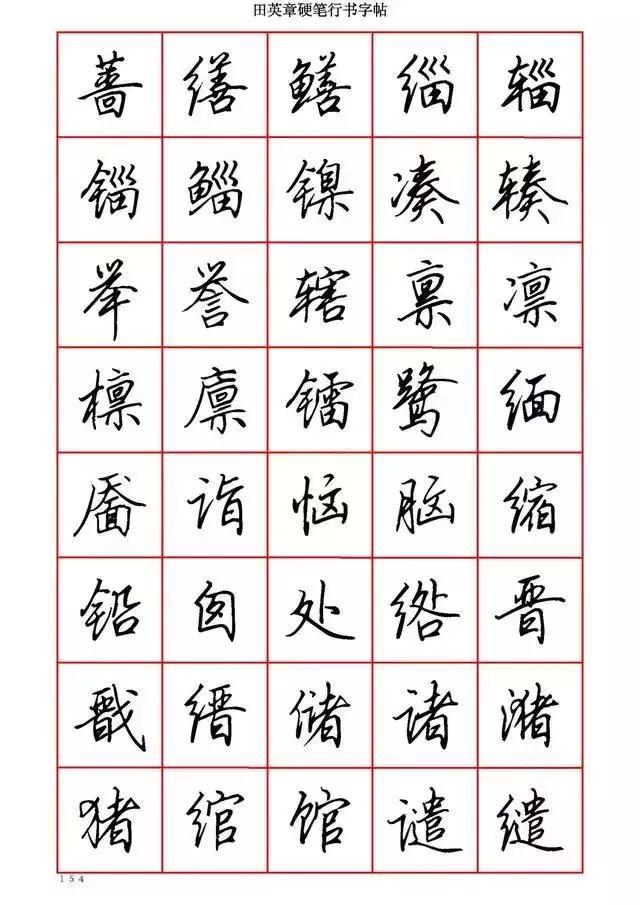 田英章硬笔行书字帖
蔷缮鳝缁辎
锱鲻镍凑辏
举誉辖禀凛
檩廪镭鹭缅
靥诣恼脑缩
铅囱处绺晋
戬缙储诸潴
猪绾馆谴缱
154